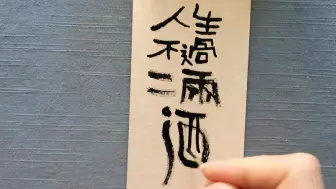 人生
不過
二兩
酒